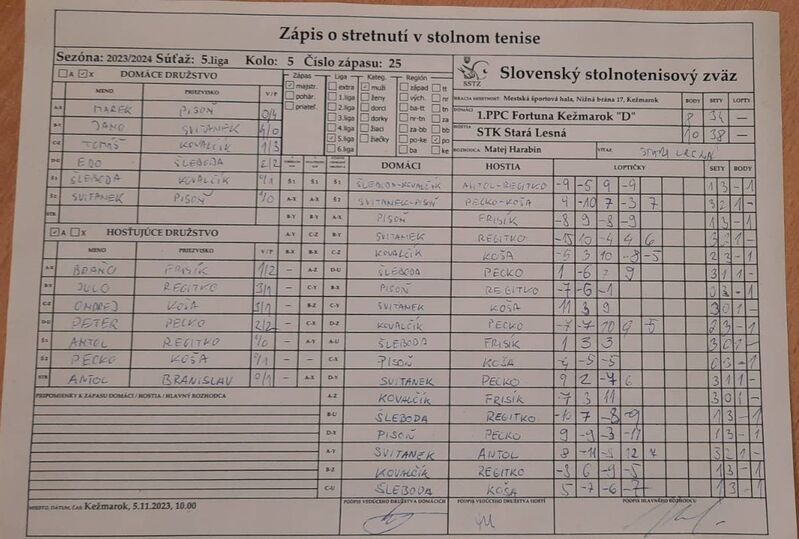 Zápis o stretnutí v stolnom tenise
Sezóna: 2023/2024 Súťaž: 5.liga Kolo: 5 Číslo zápasu: 25
Slovenský stolnotenisový zväz
SSTZ
A X DOMÁCE DRUŽSTVO
MENO PRIEZVISKO V/P
MAREK PISOŇ 0/4
JANO SVITANEK 4/0
TOMÁŠ KOVALČÍK 1/3
EDO ŠLEBODA 2/2
ŠLEBODA KOVALČÍK 0/1
SVITANEK PISOŇ 1/0
Zápas Liga Kateg. Región
majstr. extra muži západ tt
pohár. 1.liga ženy vých. nr
priateľ. 2.liga dorci ba-tt tn
3.liga dorky nr-tn za
4.liga žiaci za-bb bb
5.liga žiačky ke-po po
6.liga ba ke
Mestská športová hala, Nižná brána 17, Kežmarok BODY SETY LOPTY
DOMÁCI
1.PPC Fortuna Kežmarok "D" 8 34 —
HOSTIA
STK Stará Lesná 10 38 —
ROZHODCA Matej Harabin
A X HOSŤUJÚCE DRUŽSTVO
MENO PRIEZVISKO V/P
BRAŇO FRISÍK 1/2
JULO REGITKO 3/1
ONDREJ KOŠA 3/1
PETER PECKO 2/2
ANTOL REGITKO 1/0
PECKO KOŠA 0/1
ANTOL BRANISLAV 0/1
PRIPOMIENKY K ZÁPASU DOMÁCI / HOSTIA / HLAVNÝ ROZHODCA
DOMÁCI HOSTIA LOPTIČKY SETY BODY
ŠLEBODA-KOVALČÍK ANTOL-REGITKO -9 -5 9 -9 1 3 - 1
SVITANEK-PISOŇ PECKO-KOŠA 4 -10 7 -3 7 3 2 1 -
PISOŇ FRISÍK -8 9 -8 -9 1 3 - 1
SVITANEK REGITKO
KOVALČÍK KOŠA -5 3 10 -8 -5 2 3 - 1
ŠLEBODA PECKO 1 -6 7 9 3 1 1 -
PISOŇ REGITKO -7 -6 -1 0 3 - 1
SVITANEK KOŠA 11 3 9 3 0 1 -
KOVALČÍK PECKO -7 -7 10 9 -5 2 3 - 1
ŠLEBODA FRISIK 1 3 3 3 0 1 -
PISOŇ KOŠA -5 -5 0 3 - 1
SVITANEK PECKO 9 2 -7 6 3 1 1 -
KOVALČÍK FRISIK 7 3 11 3 0 1 -
ŠLEBODA REGITKO -10 7 -8 -9 1 3 - 1
PISOŇ PECKO 9 -9 -3 -11 1 3 - 1
SVITANEK ANTOL 8 -11 -5 12 3 2 1 -
KOVALČÍK REGITKO -3 6 -9 -5 1 3 - 1
ŠLEBODA KOŠA 5 -7 -6 -7 1 3 - 1
MIESTO, DÁTUM, ČAS Kežmarok, 5.11.2023, 10.00
PODPIS VEDÚCEHO DRUŽSTVA DOMÁCICH PODPIS VEDÚCEHO DRUŽSTVA HOSTÍ PODPIS HLAVNÉHO ROZHODCU